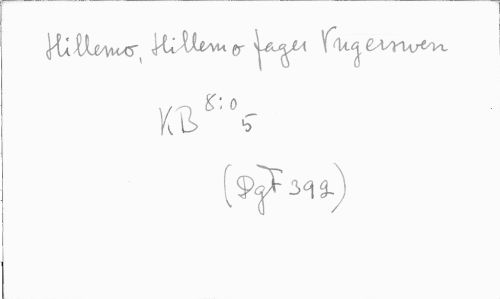 Hillemo, Hillemo fager Vngerswen
KB 8:o 5
(DgF 399)